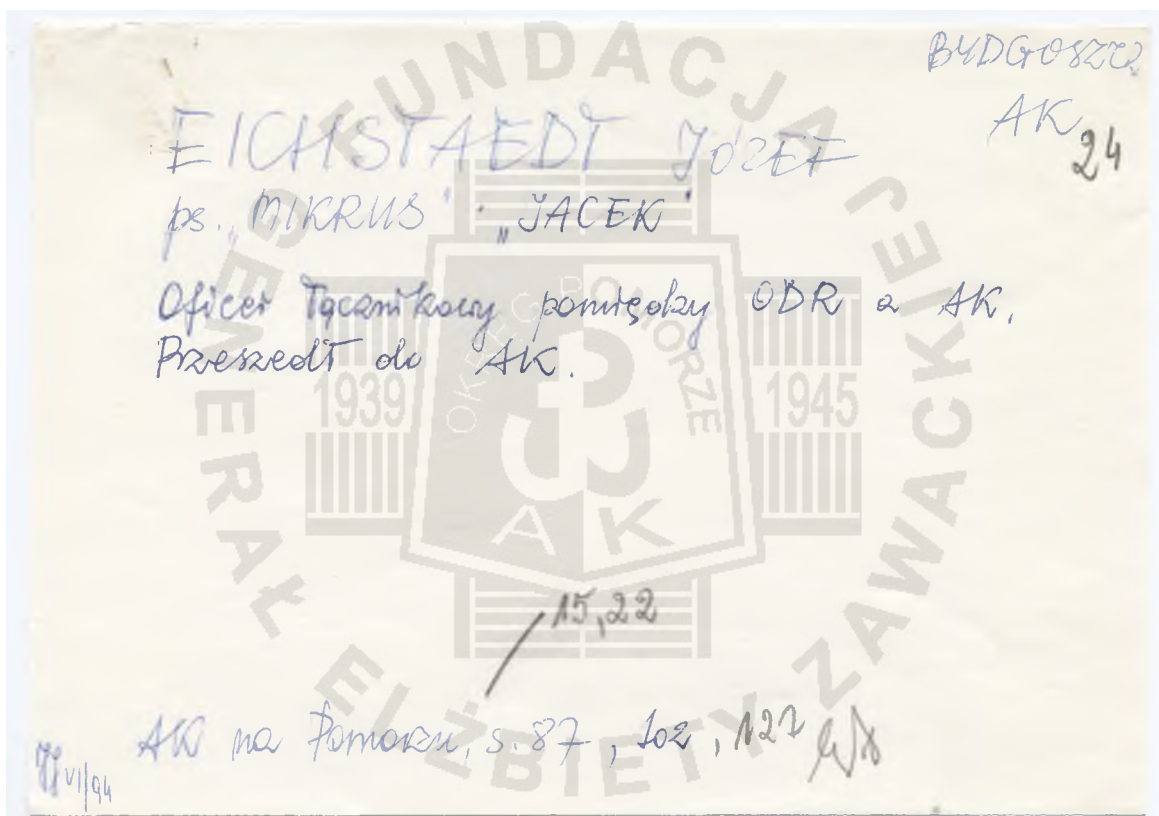 BYDGOSZCZ
AK
24
EICHSTAEDT JÓZEF
ps. „MIKRUS" „JACEK"
Oficer łącznikowy pomiędzy ODR a AK.
Przeszedł do AK.
15,22
AK na Pomorzu, s. 87, 102, 122
VI/94
FUNDACJA GENERAŁ ELŻBIETY ZAWACKIEJ
OKRĘG POMORZE
1939
1945
AK